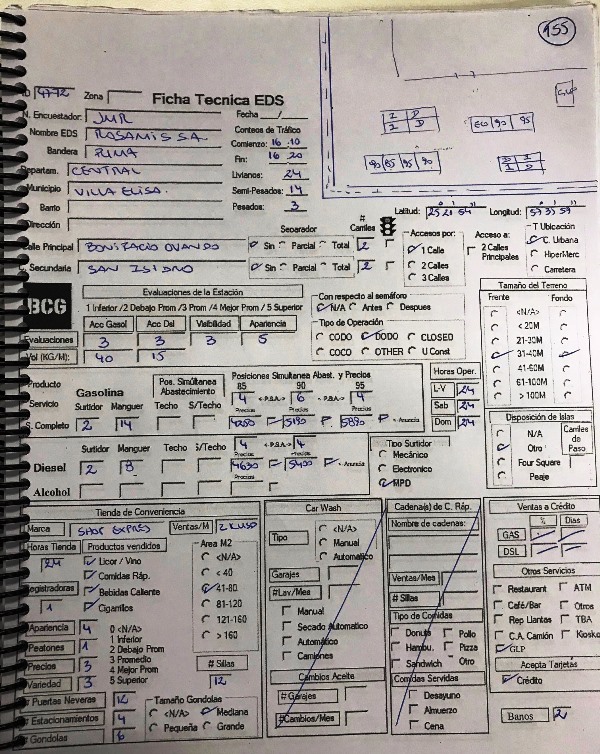 155
ID 4772 Zona Ficha Tecnica EDS
N. Encuestador: JMR Fecha /
Nombre EDS ROSAMIS S.A. Conteos de Tráfico
Bandera PUMA Comienzo: 16 10
Departam. CENTRAL Fin: 16 20
Municipio VILLA ELISA. Livianos: 24
Barrio Semi-Pesados: 14
Dirección Pesados: 3
I D
I D
90 95
90 85 95 90
D I
I D
Latitud: 25 21 54 Longitud: 57 35 59
Separador # Carriles Accesos por: Acceso a: T Ubicación
Calle Principal BONIFACIO OVANDO Sin Parcial Total 2 1 Calle 2 Calles Principales C. Urbana
C. Secundaria SAN ISIDRO Sin Parcial Total 2 2 Calles HiperMerc
3 Calles Carretera
BCG
Evaluaciones de la Estación
1 Inferior /2 Debajo Prom /3 Prom /4 Mejor Prom / 5 Superior
Acc Gasol Acc Dsl Visibilidad Apariencia
Evaluaciones 3 3 3 5
Vol (KG/M): 40 15
Con respecto al semáforo
N/A Antes Despues
Tipo de Operación
CODO DODO CLOSED
COCO OTHER U Const
Tamaño del Terreno
Frente Fondo
<N/A>
< 20M
21-30M
31-40M
41-60M
61-100M
> 100M
Producto Gasolina Pos. Simúltanea Abastecimiento Posiciones Simultanea Abast. y Precios
85 90 95
Servicio Surtidor Manguer Techo S/Techo 4 <-P.S.A.-> 6 <-P.S.A.-> 4
Precios Precios Precios
S. Completo 2 14 5190 5890 - Anuncia
Horas Oper.
L-V 24
Sab 24
Dom 24
Surtidor Manguer Techo S/Techo 4 <-P.S.A.-> 4
Precios Precios
Diesel 2 8 4630 5400 - Anuncia
Alcohol
Tipo Surtidor
Mecánico
Electronico
MPD
Disposición de Islas
N/A
Otro
Four Square
Peaje
Carriles de Paso
Tienda de Conveniencia
Marca SHOP EXPRES Ventas/M
Horas Tienda Productos vendidos
24 Licor / Vino
Comidas Ráp.
Registradoras Bebidas Caliente
1 Cigarrilos
Area M2
<N/A>
< 40
41-80
81-120
121-160
> 160
Apariencia 4 0 <N/A>
Peatones 1 1 Inferior
2 Debajo Prom
Precios 3 3 Promedio
4 Mejor Prom
Variedad 3 5 Superior
# Sillas
12
# Puertas Neveras 12 Tamaño Gondolas
# Estacionamientos 4 <N/A> Mediana
# Gondolas 6 Pequeña Grande
Car Wash
Tipo <N/A>
Manual
Automatico
Garajes
#Lav/Mes
Manual
Secado Automatico
Automático
Camiones
Cambios Aceite
# Garajes
#Cambios/Mes
Cadena(s) de C. Ráp.
Nombre de cadenas:
Ventas/Mes
# Sillas
Tipo de Comidas
Donuts Pollo
Hambu. Pizza
Sandwich Otro
Comidas Servidas
Desayuno
Almuerzo
Cena
Ventas a Crédito
% Dias
GAS
DSL
Otros Servicios
Restaurant ATM
Café/Bar Otros
Rep Llantas TBA
C.A. Camión Kiosko
GLP
Acepta Tarjetas
Crédito
Banos 2